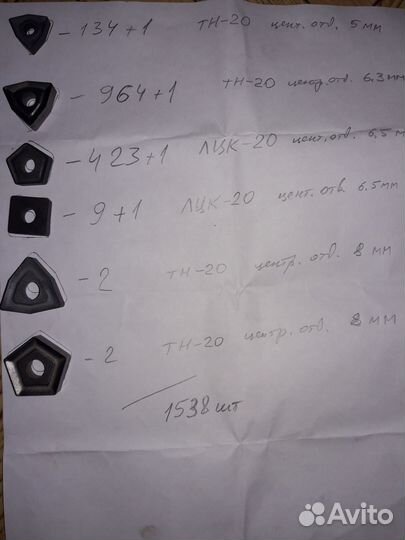 - 134 + 1 ТН-20 цент. отв. 5 мм
- 964 + 1 ТН-20 центр. отв. 6.3 мм
- 423 + 1 ЛЦК-20 цент. отв. 6.5 м
- 9 + 1 ЛЦК-20 цент. отв. 6.5 мм
- 2 ТН-20 центр. отв. 8 мм
- 2 ТН-20 центр. отв. 8 мм
1538 шт
Avito